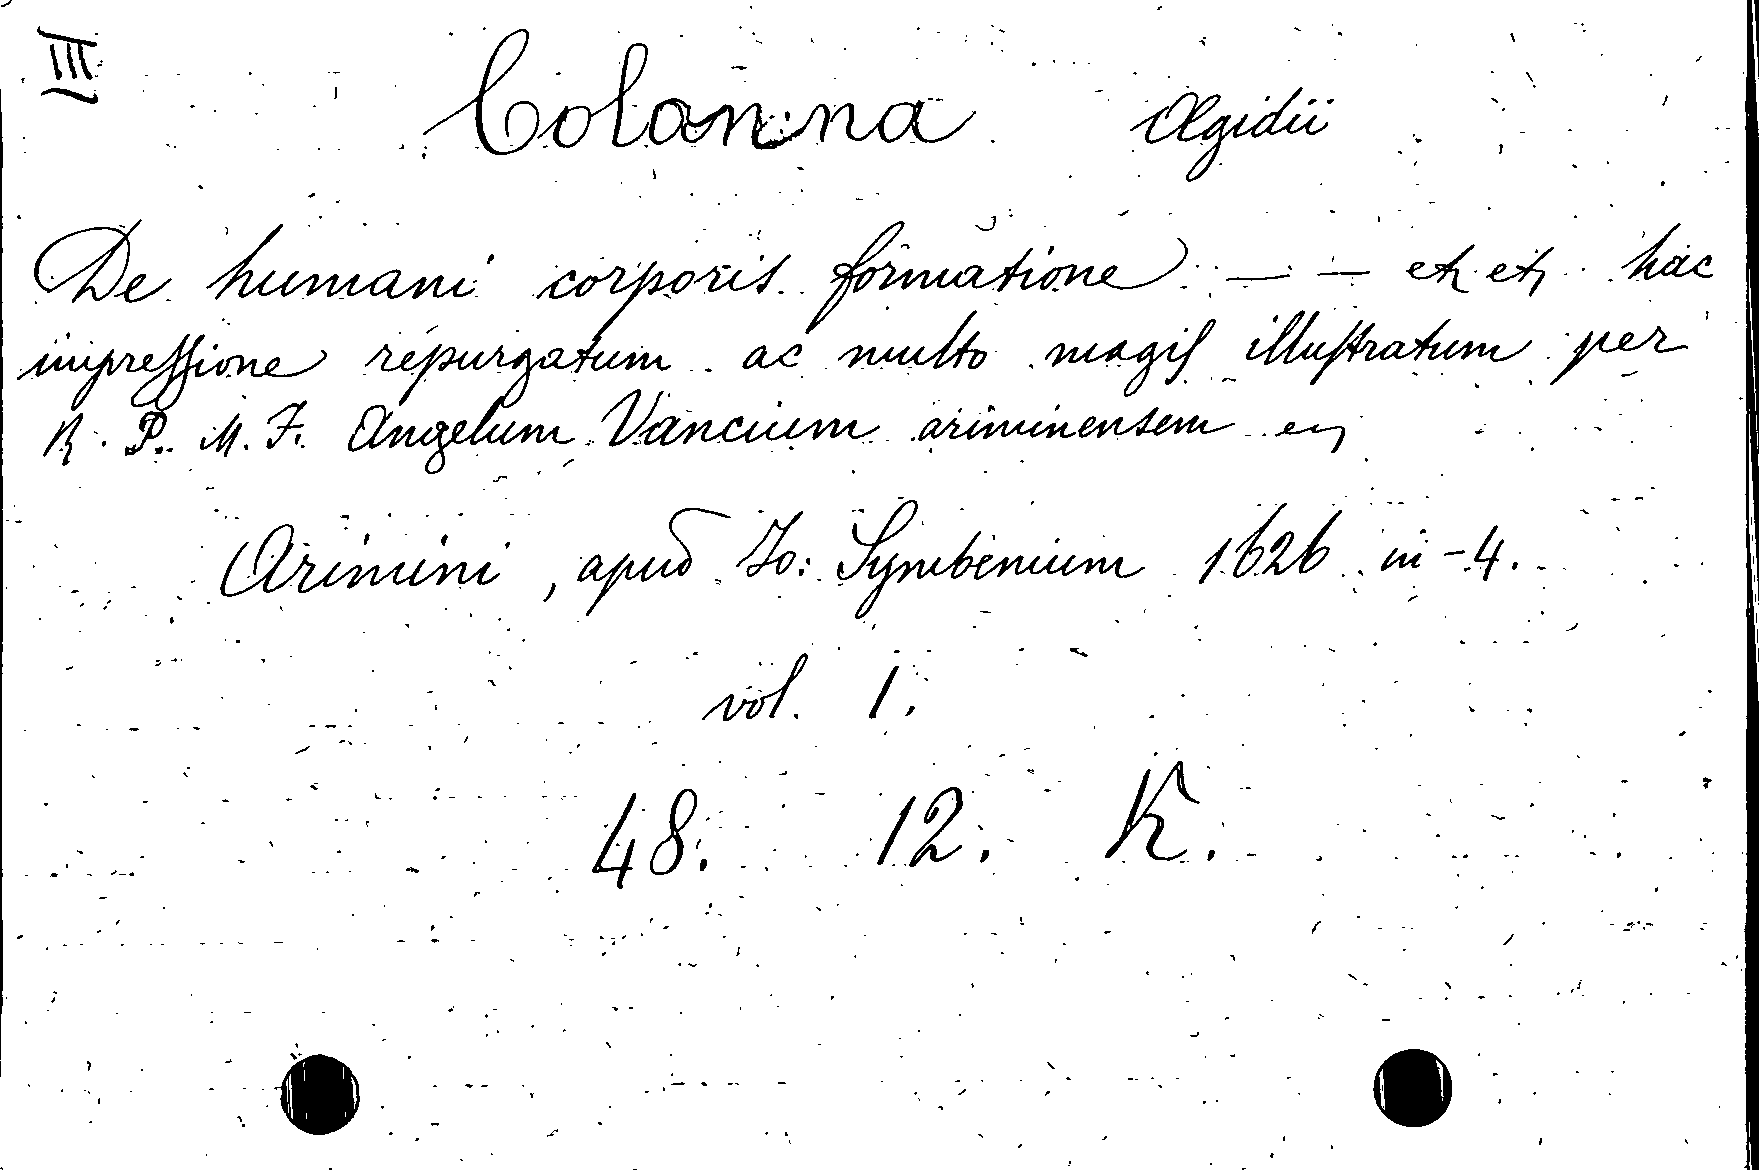 III
Colanna Ægidii
De humani corporis formatione — — et et hac
impressione repurgatum ac multo magis illustratum per
R. P. M. F. Angelum Vancium ariminensem
Arimini, apud Jo: Symbenium 1626 in-4.
vol. 1.
48. 12. K.